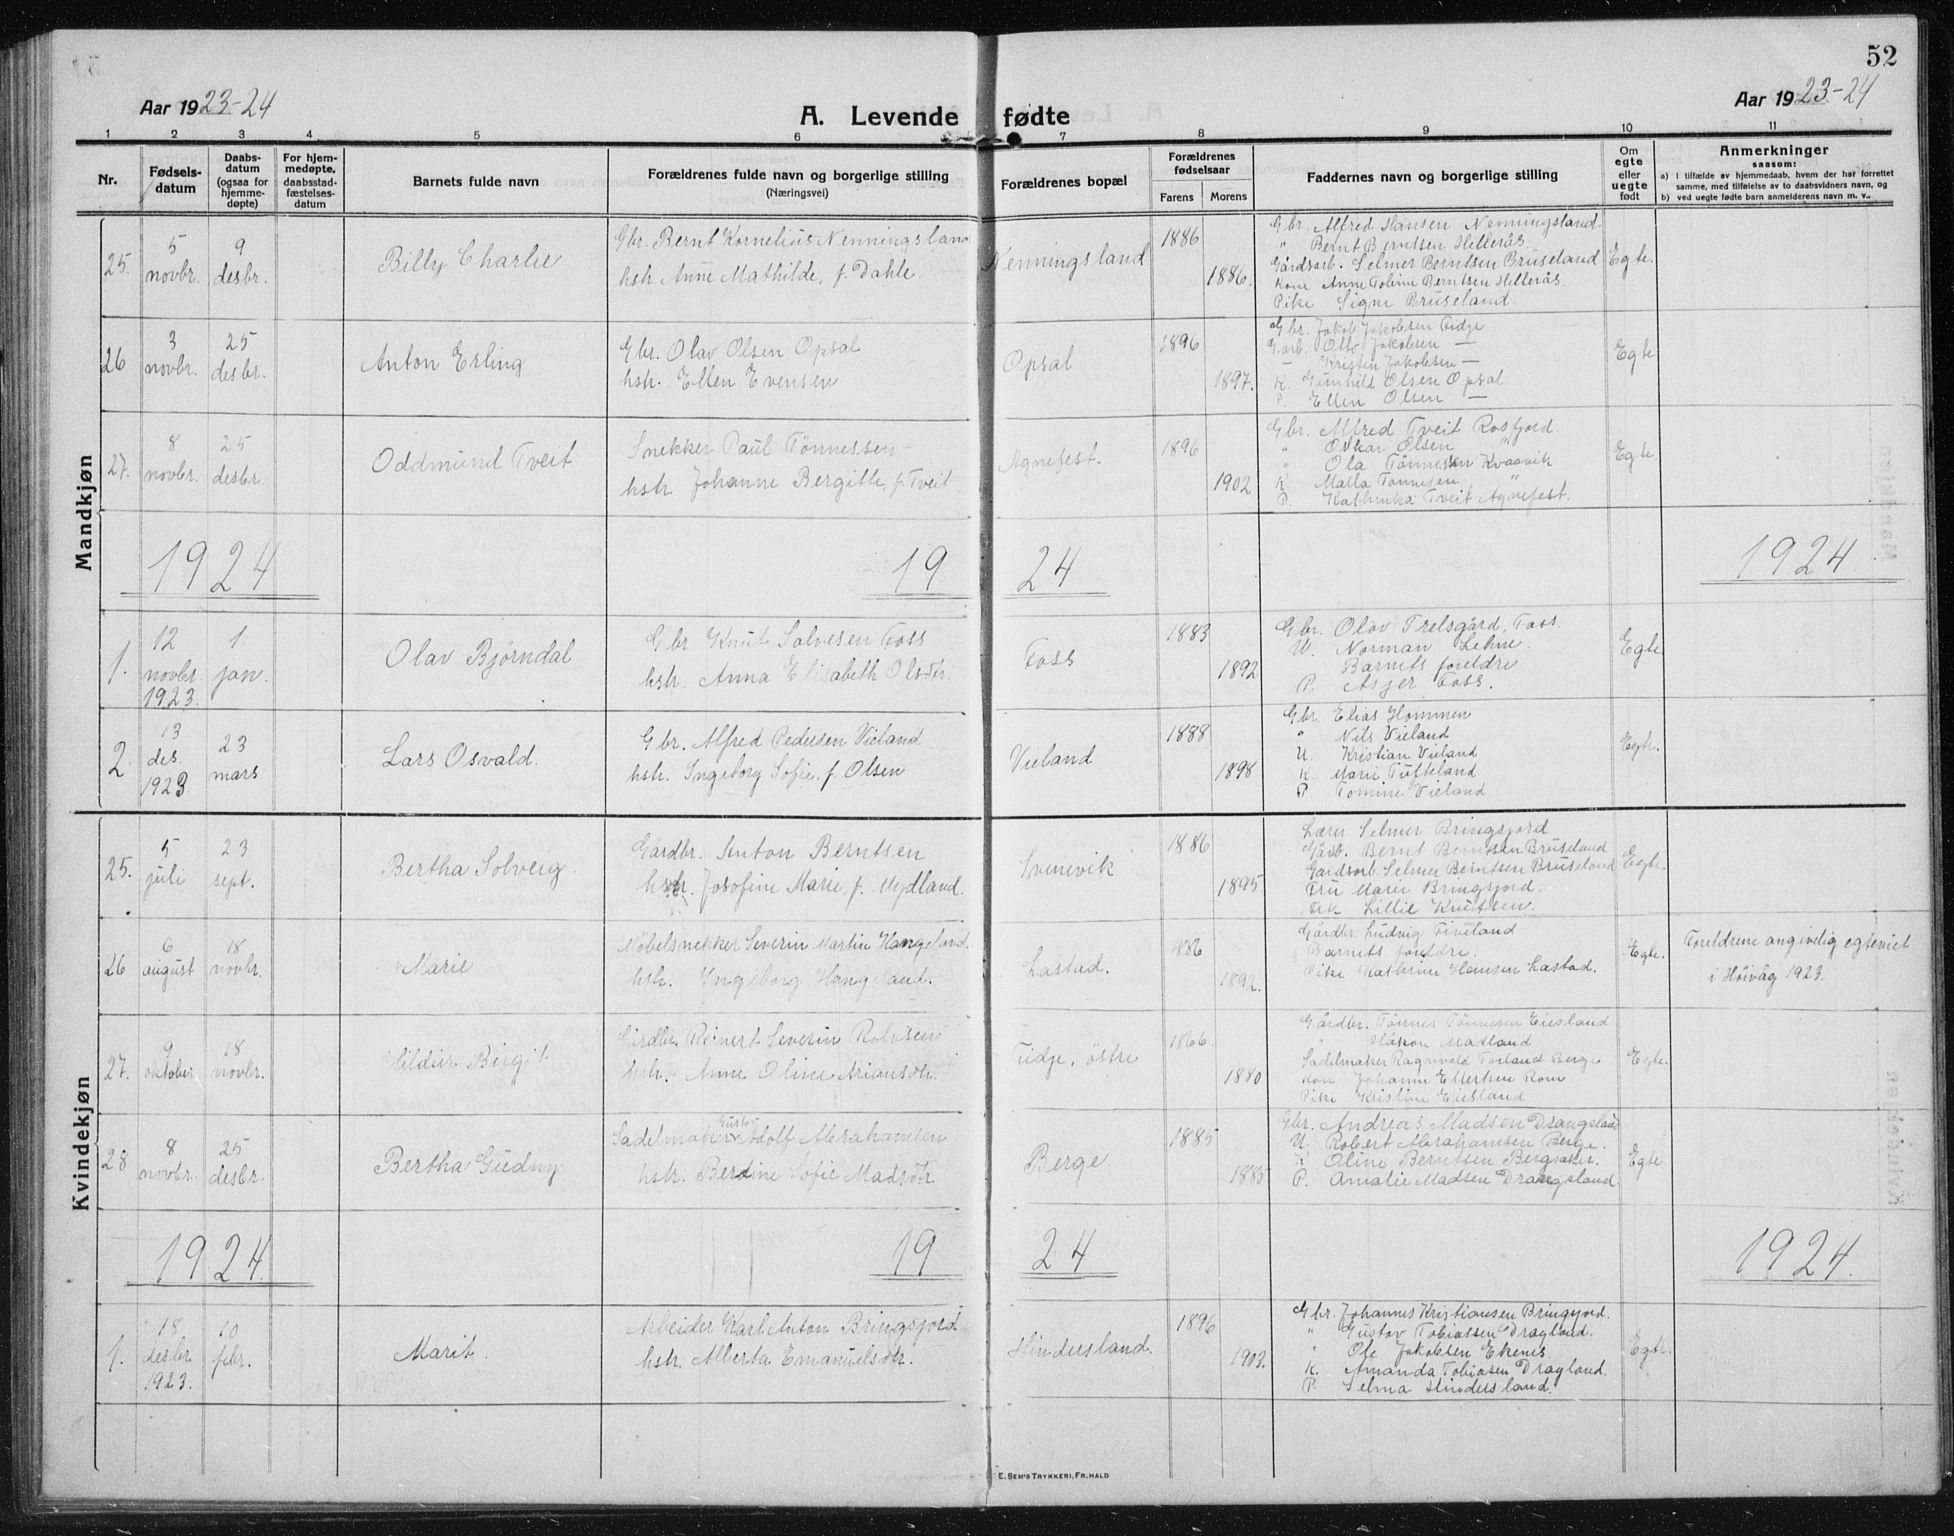 52
Aar 1923-24
A. Levende fødte
Aar 1923-24
1 2 3 4 5 6 7 8 9 10 11
Nr.
Fødsels-
datum
Daabs-
datum
(ogsaa for
hjemme-
døpte)
For hjem-
medøpte,
daabsstad-
fæstelses-
datum
Barnets fulde navn
Forældrenes fulde navn og borgerlige stilling
(Næringsvei)
Forældrenes bopæl
Forældrenes
fødselsaar
Farens Morens
Faddernes navn og borgerlige stilling
Om
egte
eller
uegte
født
Anmerkninger
saasom:
a) I tilfælde av hjemmedaab, hvem der har forrettet
samme, med tilføielse av to daabsvidners navn, og
b) ved uegte fødte barn anmelderens navn m. v.
Mandkjøn
25. 5 novbr. 9 desbr. Billy Charlie
Gbr. Bernt Kornelius Nenningsland
hstr. Anne Mathilde, f. Dahle.
Nenningsland 1886 1886.
Gbr. Alfred Hansen Nenningsland.
" Bernt Berntsen Hellerås.
Gårdsarb. Selmer Berntsen Bruseland
Kone Anne Toline Berntsen Hellerås.
Pike Signe Bruseland.
Egte.
26 3 novbr. 25 desbr. Anton Erling
Gbr. Olav Olsen Opsal
hstr. Ellen Evensen
Opsal 1896 1897.
Gbr. Jakob Jakobsen Fidje
G.arb. Otto Jakobsen —
— Kristen Jakobsen —
K. Gunhild Olsen Opsal.
P. Ellen Olsen —
Egte
27. 8 novbr. 25 desbr. Oddmund Tveit
Snekker Paul Tönnessen
hstr. Johanne Bergitte, f. Tveit
Agnefest. 1896 1902
Gbr. Alfred Tveit Rosfjord.
" Oskar Olsen "
" Ola Tönnessen Kvaavik
K. Malla Tönnesen "
P. Kathinka Tveit Agnefest.
Egte.
1924 19 24 1924
1. 12 novbr. 1923. 1. jan. Olav Bjørndal
Gbr Knut Salvesen Foss
hstr. Anna Elisabeth Olsdtr.
Foss 1883 1892
Gbr. Olav Trelsgård, Foss.
U. Norman Lehne.
Barnets foreldre
P. Asjer Foss.
Egte.
2 13 des. 1923 23 mars Lars Osvald.
Gbr. Alfred Pedersen Vieland.
hstr. Ingeborg Sofie. f. Olsen
Vieland 1888 1898
Gbr. Elias Hommen
" Nils Vieland
U. Kristian Vieland
K. Marie Tufteland
P. Tomine Vieland
Egte.
Kvindekjøn
25. 5 juli 23 sept. Bertha Solveig
Gårdbr. Anton Berntsen
hstr. Josofine Marie, f. Mydland.
Svenevik 1886 1895.
Lærer Selmer Bringsjord
Gårdb. Bernt Berntsen Bruseland
Gårdsarb. Selmer Berntsen Bruseland
Fru Marie Bringsjord.
Pik Lillie Knutsen.
Egte.
26 6 august 18 novbr. Marie
Møbelsnekker Severin Martin Hangeland.
hstr. Yngeborg Hangeland.
Lastad. 1886 1892.
Gårdbr. Ludvig Fiveland
Barnets foreldre.
Pike Kathrine Hansen Lastad.
Egte.
Foreldrene angivelig egteviet
i Höivåg 1923.
27. 9 oktober 18 novbr. Hildur Birgit
Gårdbr. Reinert Severin Rolvsen
hstr. Anne Oline Ariansdtr.
Fidje, östre 1866 1880
Gårdbr. Tönnes Tönnesen Eiesland
" Håkon Madland
Sadelmaker Ragnvald Torland Berge
Kon Johanne Ellertsen Rom
Pike Kristine Eiesland
Egte.
28 8 novbr. 25 desbr. Bertha Gudny
Gustav
Sadelmaker Adolf Abrahamsen
hstr. Berdine Sofie Madsdtr
Berge. 1885 1885
Gbr. Andreas Madsen Drangsland
U. Robert Abrahamsen Berge.
K. Oline Berntsen Bergsaker.
P. Amalie Madsen Drangsland
Egte.
1924 19 24 1924.
1. 18 desbr. 1923. 10 febr. Marit.
Arbeider Karl Anton Bringsjord
hstr. Alberta Emanuelsdtr.
Hindersland. 1896 1903.
Gbr. Johannes Kristiansen Bringsjord.
" Gustav Tobiassen Dragland.
" Ole Jakobsen Ekenes.
K. Amanda Tobiasen Dragland.
P. Selma Hindersland.
Egte.
E. Sem's Trykkeri, Fr.hald